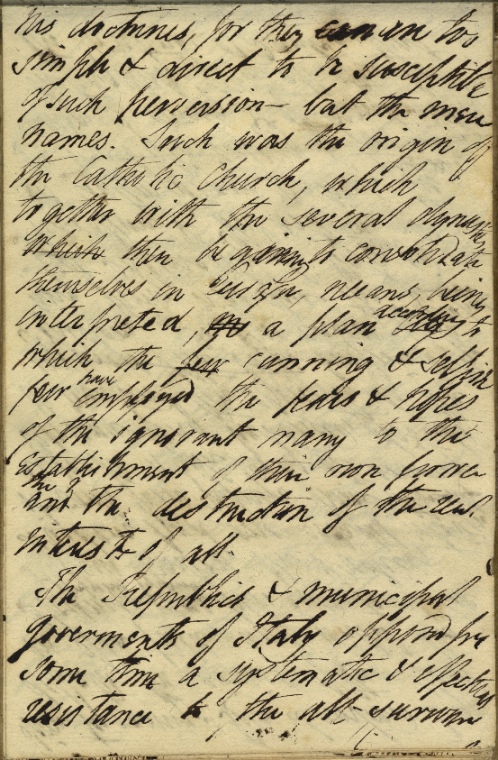 his doctrines, for they are in too
simple & direct to be susceptible
of such perversion – but the mere
names. Such was the origin of
the Catholic Church, which
together with the several dynasties
which then beginning to consolidate
themselves in Europe, means, being
interpreted, a plan according to
which the few cunning & selfish
few have employed the fears & hopes
of the ignorant many to the
establishment of their own power
and the destruction of the real
interests of all.
The Republics & municipal
goverments of Italy opposed for
some time a systematic & effectual
resistance to the all surroun